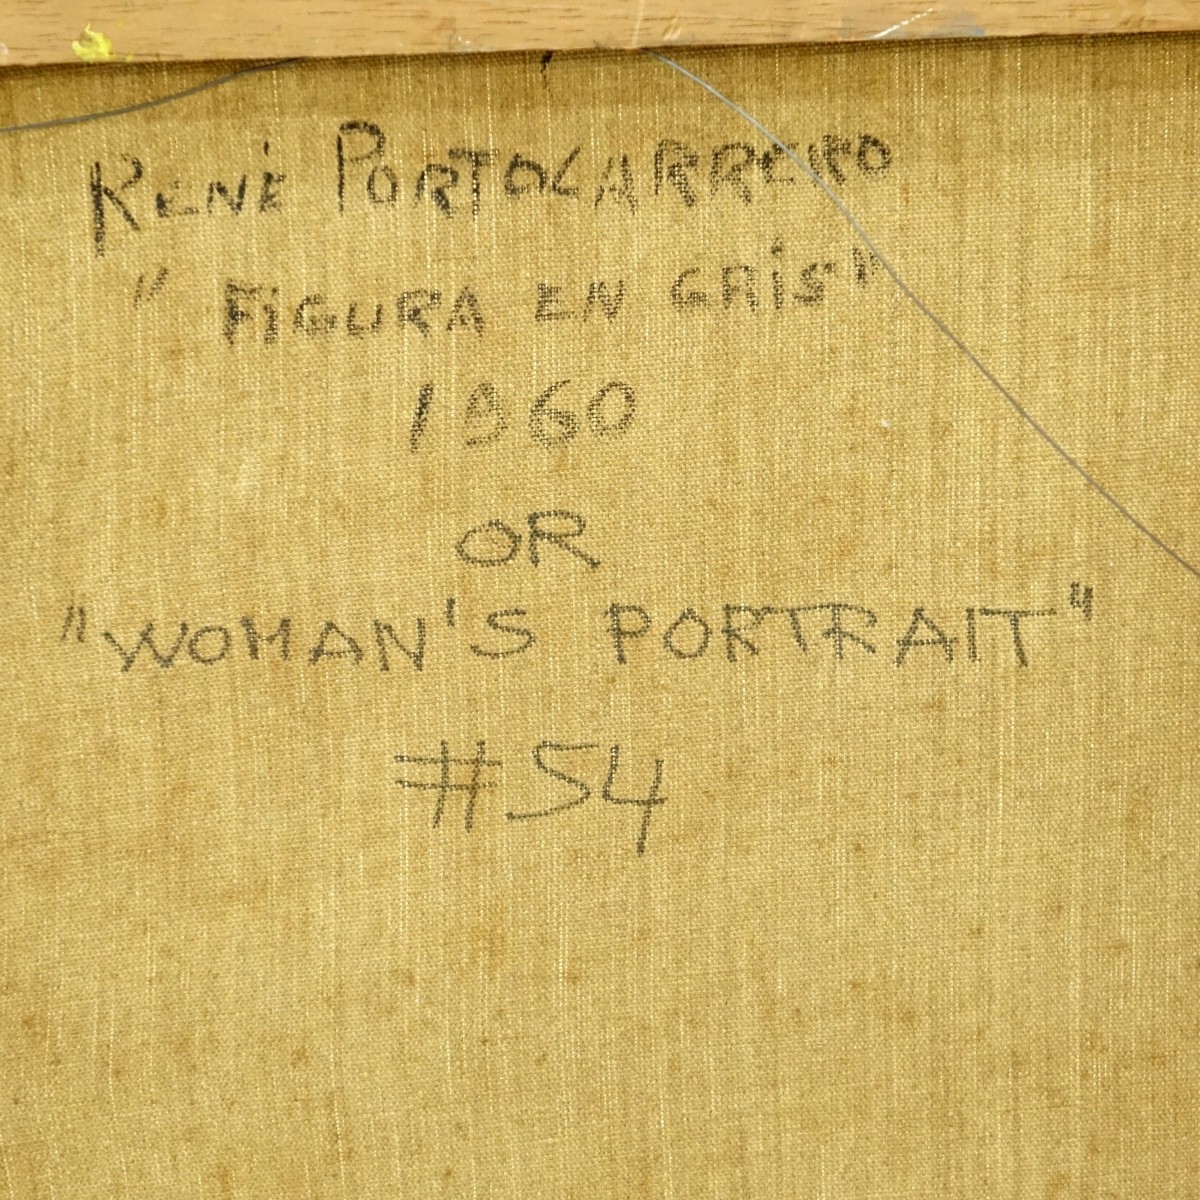 René PORTOCARRERO
" FiGURA EN GRiS"
1960
OR
"WOMAN'S PORTRAIT"
#54